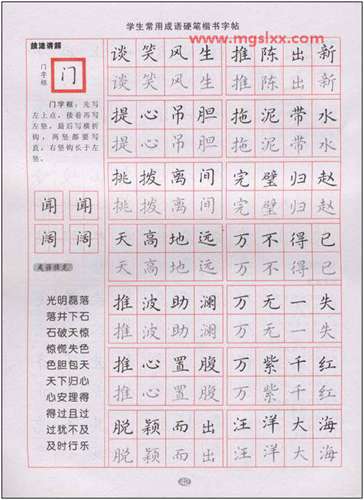 学生常用成语硬笔楷书字帖
www.mgslxx.com
技法讲解
门字框
门
门字框：先写
左上点，接着再写
左竖，最后写横折
钩，两竖都要写
直，右竖钩长于左
竖。
闻 闻
阔 阔
成语填充
光明磊落
落井下石
石破天惊
惊慌失色
色胆包天
天下归心
心安理得
得过且过
过犹不及
及时行乐
谈笑风生 推陈出新
谈笑风生 推陈出新
提心吊胆 拖泥带水
提心吊胆 拖泥带水
挑拨离间 完璧归赵
挑拨离间 完璧归赵
天高地远 万不得已
天高地远 万不得已
推波助澜 万无一失
推波助澜 万无一失
推心置腹 万紫千红
推心置腹 万紫千红
脱颖而出 汪洋大海
脱颖而出 汪洋大海